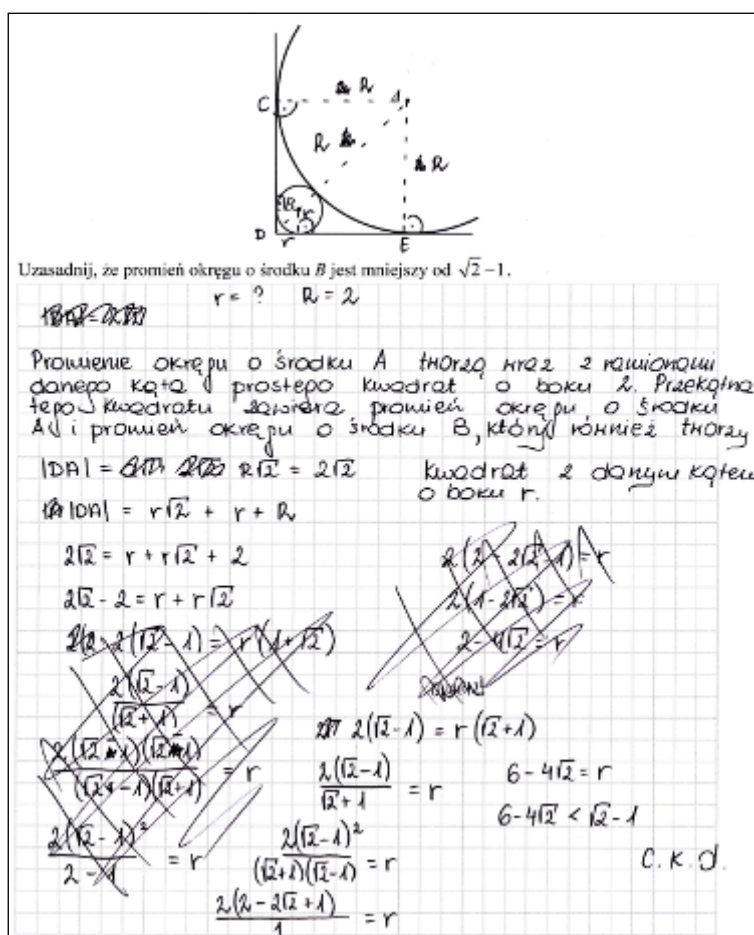 C R A
R
R
B r
D r E
Uzasadnij, że promień okręgu o środku B jest mniejszy od √2−1.
r = ? R = 2
Promienie okręgu o środku A tworzą wraz z ramionami
danego kąta prostego kwadrat o boku 2. Przekątna
tego kwadratu zawiera promień okręgu o środku
A i promień okręgu o środku B, który również tworzy
kwadrat z danym kątem
o boku r.
|DA| = R√2 = 2√2
|DA| = r√2 + r + R
2√2 = r + r√2 + 2
2√2 − 2 = r + r√2
2(√2 − 1) = r(1 + √2)
2(√2−1)/(√2+1) = r
2(√2−1)(√2−1)/(√2−1)(√2+1) = r
2(√2−1)²/2−1 = r
2(2 − 2√2 − 1) = r
2(1 − 2√2) = r
2 − 4√2 = r
2(√2−1) = r(√2+1)
2(√2−1)/√2+1 = r
2(√2−1)²/(√2+1)(√2−1) = r
2(2−2√2+1)/1 = r
6 − 4√2 = r
6 − 4√2 < √2 − 1
C.K.d.